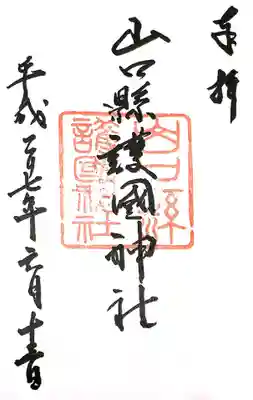 奉拝
山口縣護國神社
山口縣
護國神社
平成二十七年